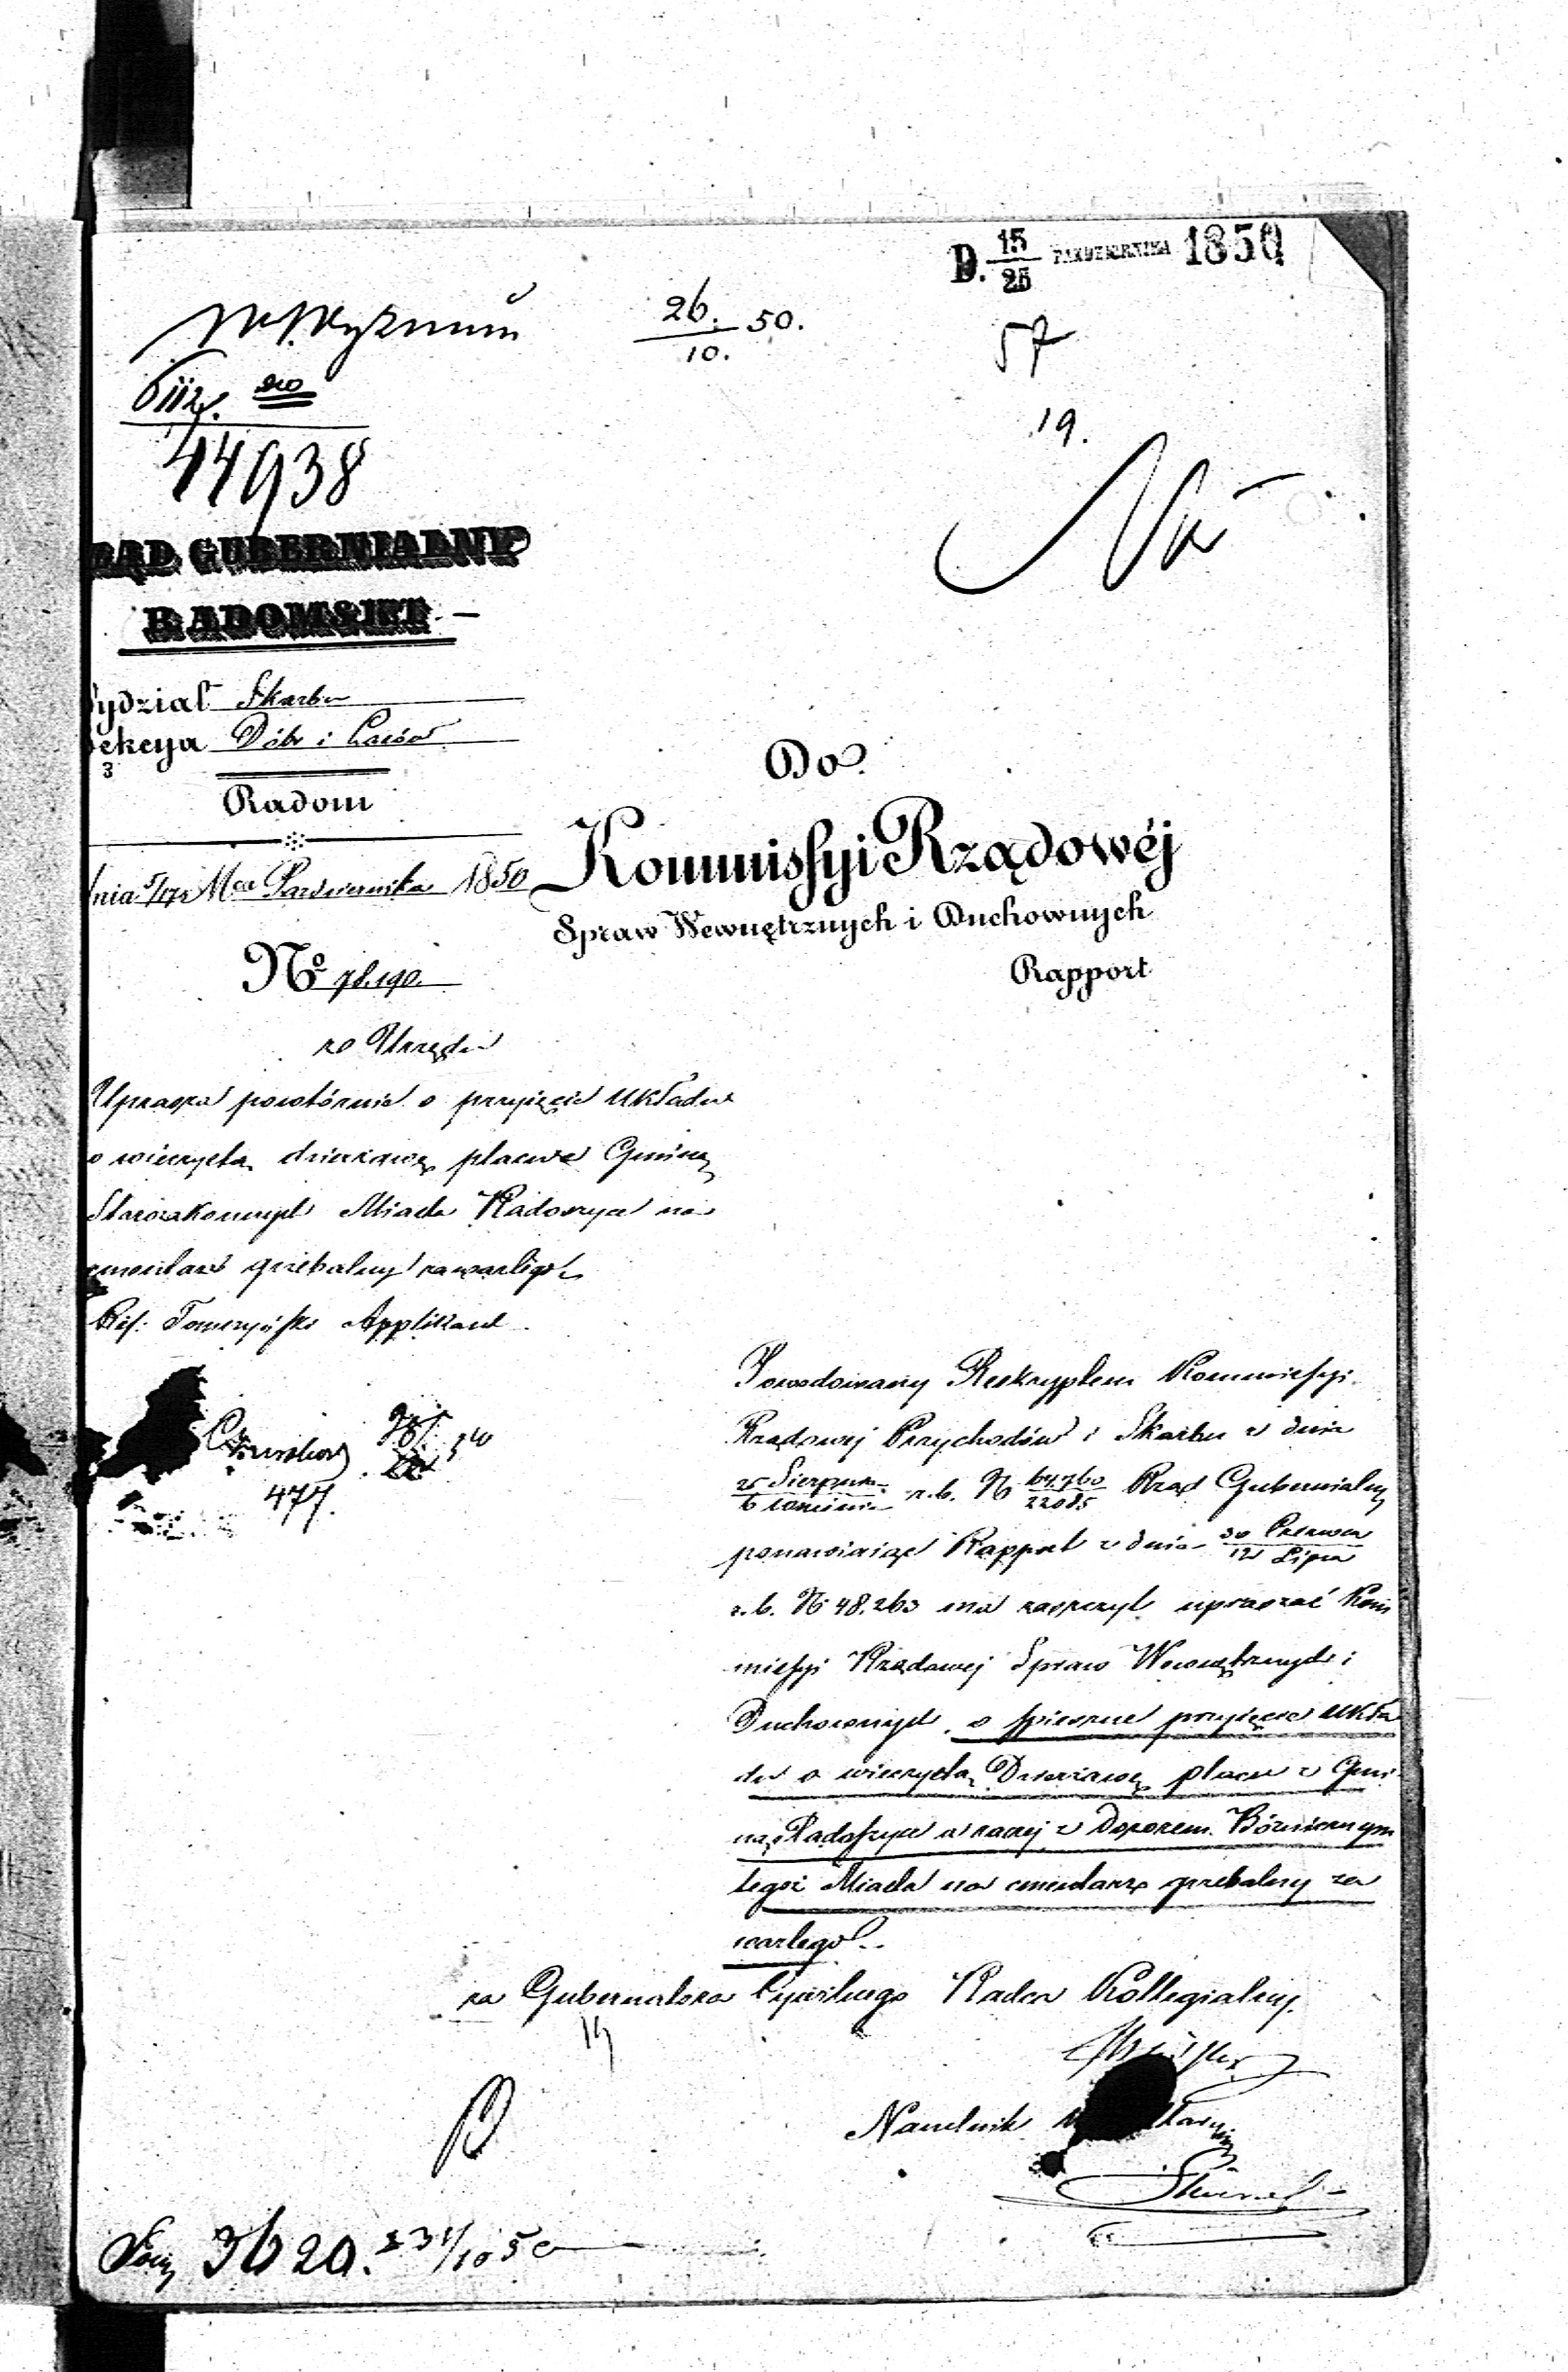 D. 15/25 PAŹDZIERNIKA 1850
26./10. 50.
57
19.
44938
RĄD GUBERNIALNY
RADOMSKI
ydział Skarbu
ekcya Dóbr i Lasów
3
Radom
nia 5/17 Mca Października 1850
No 78.190.
Do
Kommissyi Rządowéj
Spraw Wewnętrznych i Duchownych
Rapport
ze Urzędu
Uprasza powtórnie o przyięcie układu
o wieczystą dzierżawę placu z Gminą
Starozakonnych Miasta Radoszyce na
cmentarz grzebalny zawartego
Ref: Tomczyński Applikant
477.
Powodowany Reskryptem Kommissyi
Rządowej Przychodów i Skarbu z dnia
25 Sierpnia/6 Września r.b. N 64.760/22085 Rząd Gubernialny
ponawiaiąc Rapport z dnia 30 Czerwca/12 Lipca
r.b. N 48.263 ma zaszczyt upraszać Kom
missyi Rządowej Spraw Wewnętrznych i
Duchownych, o spieszne przyięcie układ
du o wieczystą Dzierżawę placu z Gmi
ną Radoszyce a raczej z Dozorem Bóżniczym
tegoż Miasta na cmentarz grzebalny za
wartego.
za Gubernatora Cywilnego Radca Kollegialny.
Naczelnik
3620. 31/10 50